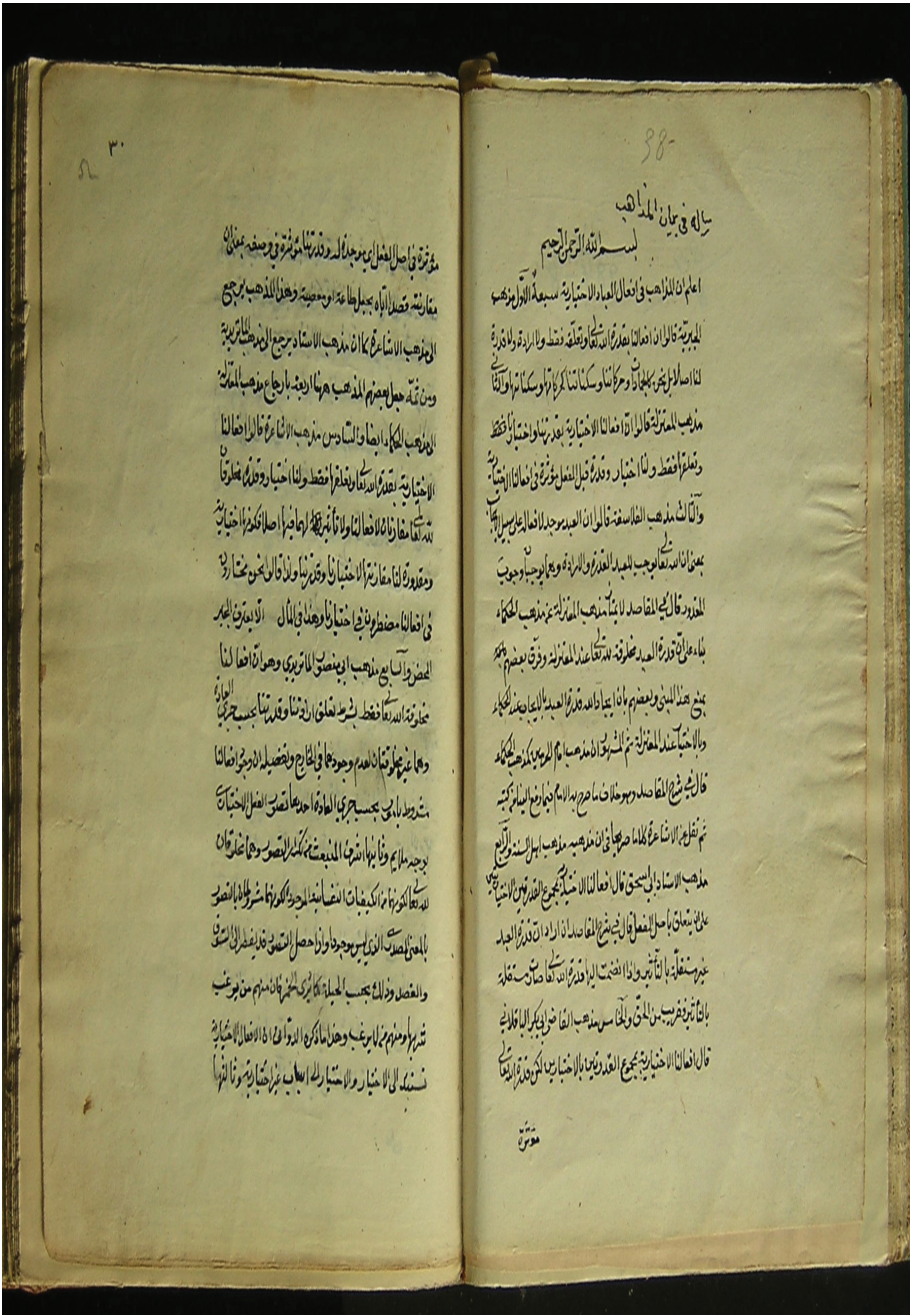 رساله فى بيان المذاهب
بسم الله الرحمن الرحيم
اعلم ان المذاهب فى افعال العباد الاختيارية سبعة الاول مذهب
الجبرية قالوا ان افعالنا بقدرة الله تعا وتعلقه فقط ولا ارادة ولا قدرة
لنا اصلا بل نحن كالجمادات وحركاتنا وسكناتنا كحركاتها وسكناتها والثانى
مذهب المعتزلة قالوا ان افعالنا الاختيارية بقدرتنا واختيارنا فقط
وتعلقها فقط ولنا اختيار وقدرة قبل الفعل مؤثرة فى افعالنا الاختيارية
والثالث مذهب الفلاسفة قالوا ان العبد موجد لافعاله على سبيل الايجاب
بمعنى ان الله تعا يوجب للعبد القدرة والارادة وهما يوجبان وجوب
المقدور قال فى المقاصد لا يمتاز مذهب المعتزلة عن مذهب الحكماء
بناء على ان قدرة العبد مخلوقة لله تعا عند المعتزلة وفرق بعضهم
بمنع هذا المبنى وبعضهم بان ايجاد الله قدرة العبد بالايجاب عند الحكماء
وبالاختيار عند المعتزلة ثم المشهور ان مذهب امام الحرمين كمذهب الحكماء
قال فى شرح المقاصد وهو خلاف ما صرح به الامام فيما وقع الينا من كتبه
ثم نقل عن الاشاعرة كلاما صريحا فى ان مذهبه مذهب اهل السنة والرابع
مذهب الاستاذ ابى اسحق قال افعالنا الاختيارية بمجموع القدرتين والاختيارين
على ان يتعلق باصل الفعل قال فى شرح المقاصد ان اراد ان قدرة العبد
غير مستقلة بالتأثير واذا انضمت اليها قدرة الله تعا صارت مستقلة
بالتأثير فقريب من الحق والخامس مذهب القاضى ابى بكر الباقلانى
قال افعالنا الاختيارية بمجموع القدرتين بالاختيارين لكن قدرة الله تعالى
مؤثرة
٣٠
مؤثرة فى اصل الفعل اى موجدة له وقدرتنا مؤثرة فى وصفه بمعنى ان
مقارنته قصدا اياه يجعل طاعة او معصية وهذا المذهب يرجع
الى مذهب الاشاعرة كما ان مذهب الاستاد يرجع الى مذهب الماتريدية
ومن ثمه جعل بعضهم المذهب ههنا اربعة بارجاع مذهب المعتزلة
الى مذهب الحكماء ايضا والسادس مذهب الاشاعرة قالوا افعالنا
الاختيارية بقدرة الله تعا وتعلقها فقط ولنا اختيار وقدرة مخلوقان
لله تعا مقارنان لافعالنا ولا تأثير لهما فيها اصلا فكونها اختيارية
ومقدورة لنا مقارنتها لاختيارنا وقدرتنا ولذا قالوا نحن مختارون
فى افعالنا مضطرون فى اختيارنا وهذا فى المآل لا يفترق الجبر
المحض والسابع مذهب ابى منصور الماتريدى وهو ان افعالنا
مخلوقة الله تعا فقط بشرط تعلق ارادتنا وقدرتنا بحسب جرى العادة
وهما غير مخلوقتان لعدم وجودهما فى الخارج وتفصيله ان وجود افعالنا
مشروط بامور بحسب جرى العادة احدها تصور الفعل الاختيارى
بوجه ملايم وثانيها الشوق المنبعث من ذلك التصور وهما مخلوقان
لله تعا لكونهما من الكيفيات النفسانية الموجودة لكونهما مشروطان بالتصور
بالمعنى المصدرى الذى ليس بموجود واذا حصل التصور قد يفضى الى الشوق
والقصد وذلك بحسب الجبلة كما ترى الخمر فان منهم من يرغب
شربها ومنهم من لا يرغب وهذا ما ذكره الدوانى ان الافعال الاختيارية
تستند الى الاختيار والاختيار الى اسباب غير اختيارية وثالثها